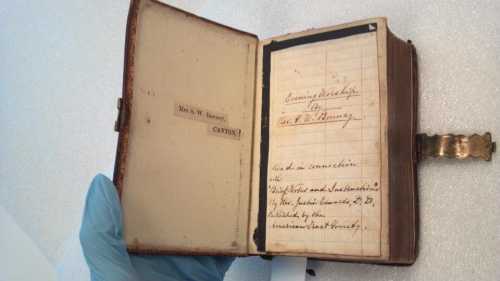 Mrs S. W. Bonney,
CANTON.
Evening Worship.
By
Rev. S. W. Bonney
Used in connection
with
"Brief Notes and Instructions"
By Rev. Justin Edwards, D. D.,
Published by the
American Tract Society.